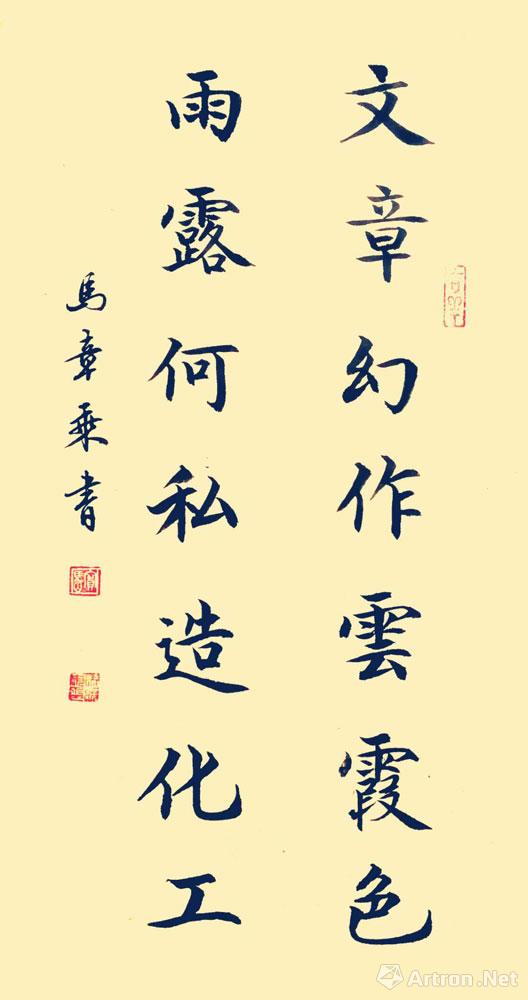 文章幻作雲霞色
雨露何私造化工
馬章乘書
Artron.Net